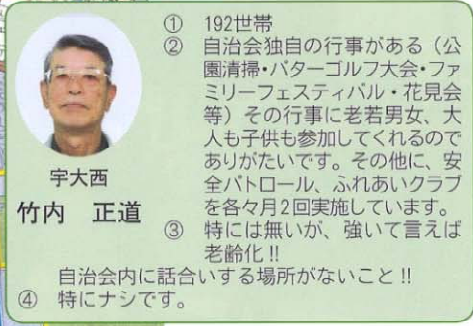 ① 192世帯
② 自治会独自の行事がある（公
園清掃・パターゴルフ大会・ファ
ミリーフェスティバル・花見会
等）その行事に老若男女、大
人も子供も参加してくれるので
ありがたいです。その他に、安
全パトロール、ふれあいクラブ
を各々月2回実施しています。
③ 特には無いが、強いて言えば
老齢化!!
自治会内に話合いする場所がないこと!!
④ 特にナシです。
宇大西
竹内 正道